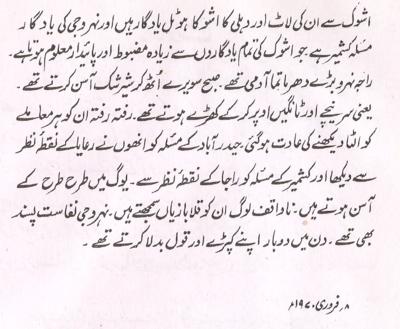 اشوک سے ان کی لاٹ اور دہلی کا اشوکا ہوٹل یادگار ہیں اور نہرو جی کی یادگار
مسئلہ کشمیر ہے جو اشوک کی تمام یادگاروں سے زیادہ مضبوط اور پائیدار معلوم ہوتا ہے۔
راجہ نہرو بڑے دھرماتما آدمی تھے۔ صبح سویرے اُٹھ کر شیرشک آسن کرتے تھے۔
یعنی سر نیچے اور ٹانگیں اوپر کر کے کھڑے ہوتے تھے۔ رفتہ رفتہ ان کو ہر معاملے کو
الٹا دیکھنے کی عادت ہو گئی۔ حیدر آباد کے مسئلہ کو انھوں نے رعایا کے نقطۂ نظر
سے دیکھا اور کشمیر کے مسئلہ کو راجا کے نقطۂ نظر سے۔ یوگ میں طرح طرح کے
آسن ہوتے ہیں۔ ناواقف لوگ ان کو قلابازیاں سمجھتے ہیں۔ نہرو جی نفاست پسند
بھی تھے۔ دن میں دو بار اپنے کپڑے اور قول بدلا کرتے تھے۔
۸؍ فروری ۱۹۷۰ء